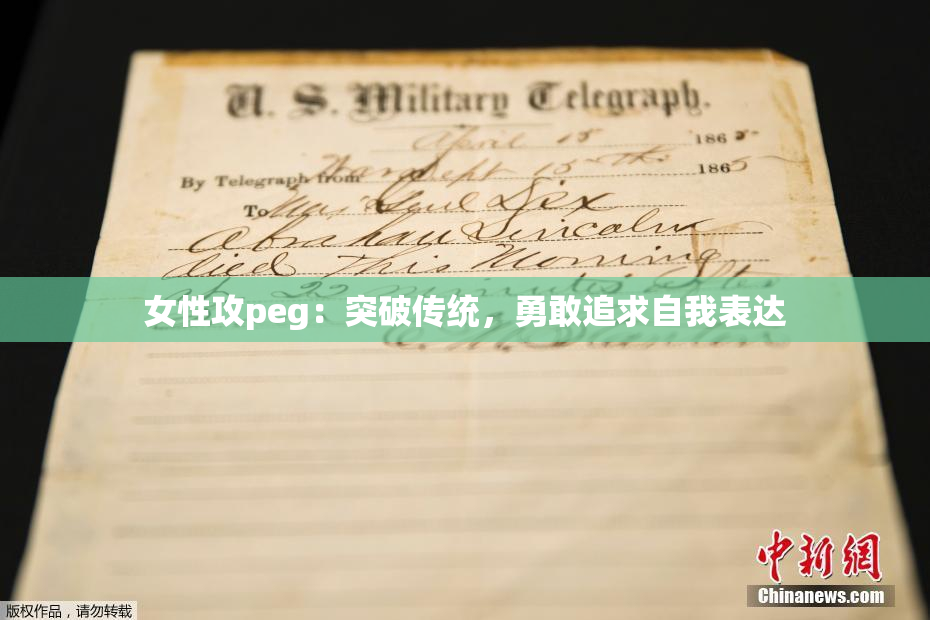 U. S. Military Telegraph.
April 15 1865
By Telegraph from War Dept 15th 1865
To Maj Genl Dix
Abraham Lincoln
died this Morning
at 22 minutes after
女性攻peg：突破传统，勇敢追求自我表达
中新网
Chinanews.com
版权作品，请勿转载